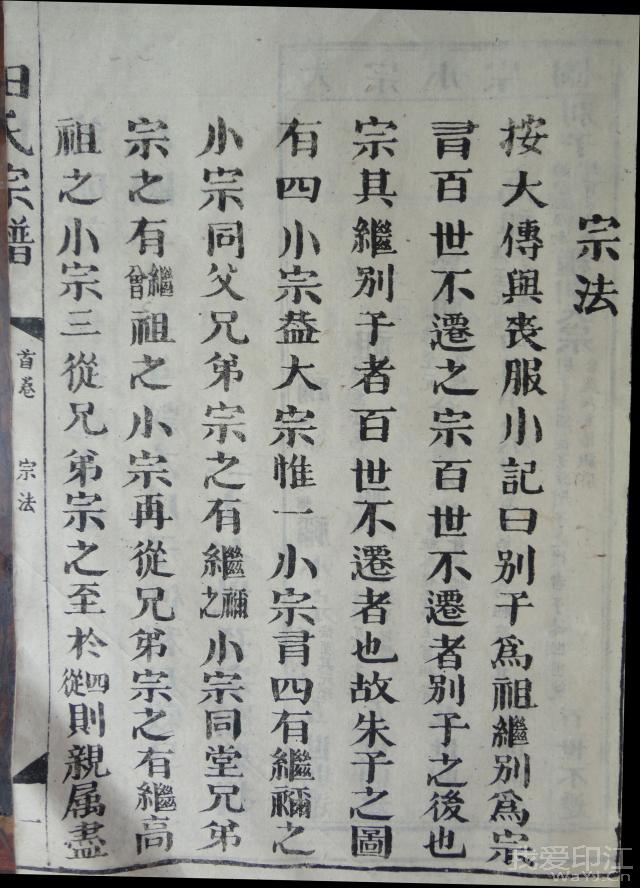 宗法
按大傳與喪服小記曰别子為祖繼别為宗
有百世不遷之宗百世不遷者别子之後也
宗其繼别子者百世不遷者也故朱子之圖
有四小宗葢大宗惟一小宗有四有繼禰之
小宗同父兄弟宗之有繼禰之小宗同堂兄弟
宗之有繼曾祖之小宗再從兄弟宗之有繼高
祖之小宗三從兄弟宗之至於四從則親属盡
田氏宗譜
首卷
宗法
一
我爱印江
www.wayj.cn